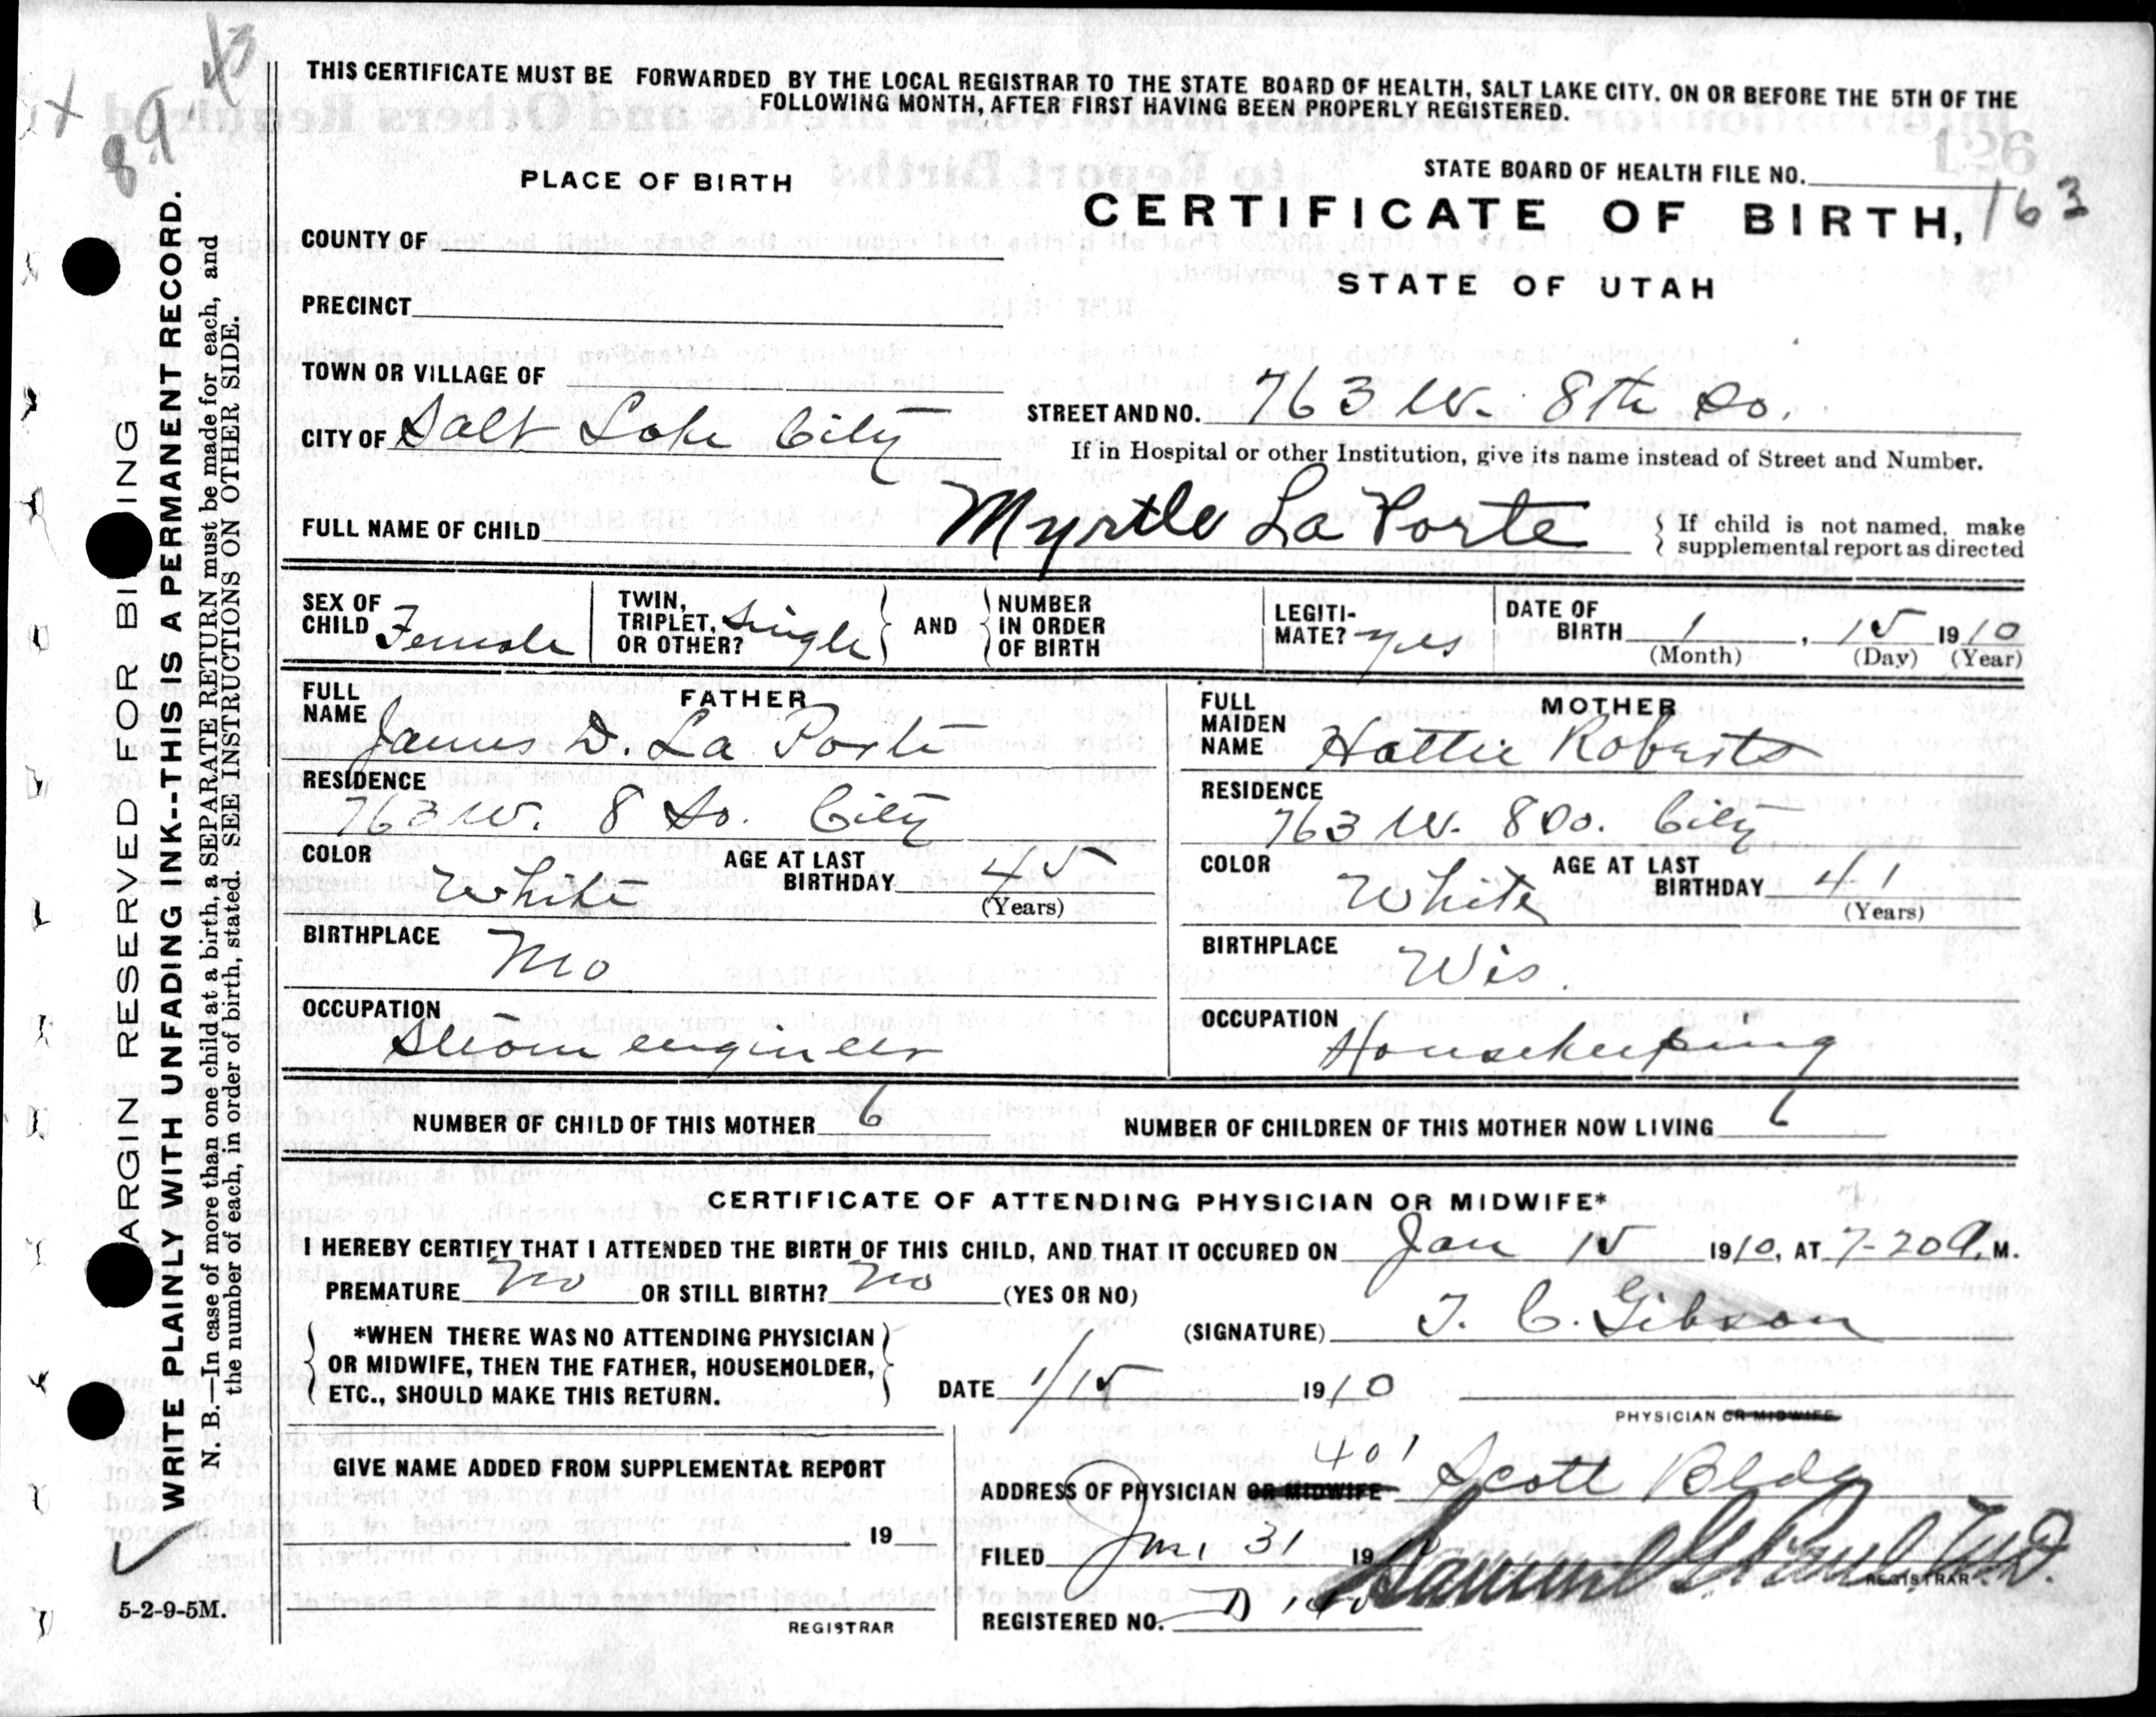 THIS CERTIFICATE MUST BE FORWARDED BY THE LOCAL REGISTRAR TO THE STATE BOARD OF HEALTH, SALT LAKE CITY. ON OR BEFORE THE 5TH OF THE
FOLLOWING MONTH, AFTER FIRST HAVING BEEN PROPERLY REGISTERED.
PLACE OF BIRTH
STATE BOARD OF HEALTH FILE NO.
CERTIFICATE OF BIRTH, 163
STATE OF UTAH
COUNTY OF
PRECINCT
TOWN OR VILLAGE OF
CITY OF Salt Lake City
STREET AND NO. 763 W. 8th So.
If in Hospital or other Institution, give its name instead of Street and Number.
FULL NAME OF CHILD Myrtle La Porte
If child is not named, make
supplemental report as directed
SEX OF CHILD Female
TWIN, TRIPLET, OR OTHER? Single
AND
NUMBER IN ORDER OF BIRTH
LEGITI-MATE? yes
DATE OF BIRTH 1, 15 1910
(Month) (Day) (Year)
FATHER
FULL NAME James D. La Porte
RESIDENCE
763 W. 8 So. City
COLOR White
AGE AT LAST BIRTHDAY 45
(Years)
BIRTHPLACE
Mo
OCCUPATION
Steam engineer
MOTHER
FULL MAIDEN NAME Hattie Roberts
RESIDENCE
763 W. 8 So. City
COLOR White
AGE AT LAST BIRTHDAY 41
(Years)
BIRTHPLACE Wis.
OCCUPATION
Housekeeping
NUMBER OF CHILD OF THIS MOTHER 6
NUMBER OF CHILDREN OF THIS MOTHER NOW LIVING 6
CERTIFICATE OF ATTENDING PHYSICIAN OR MIDWIFE*
I HEREBY CERTIFY THAT I ATTENDED THE BIRTH OF THIS CHILD, AND THAT IT OCCURED ON Jan 15 1910, AT 7-20 A. M.
PREMATURE No OR STILL BIRTH? No (YES OR NO)
*WHEN THERE WAS NO ATTENDING PHYSICIAN
OR MIDWIFE, THEN THE FATHER, HOUSEHOLDER,
ETC., SHOULD MAKE THIS RETURN.
(SIGNATURE) T. C. Gibson
DATE 1/15 1910
PHYSICIAN OR MIDWIFE
GIVE NAME ADDED FROM SUPPLEMENTAL REPORT
19
REGISTRAR
401
ADDRESS OF PHYSICIAN OR MIDWIFE Scott Bldg
FILED Jan 31 19
REGISTRAR
REGISTERED NO.
MARGIN RESERVED FOR BINDING
WRITE PLAINLY WITH UNFADING INK--THIS IS A PERMANENT RECORD.
N. B.—In case of more than one child at a birth, a SEPARATE RETURN must be made for each, and
the number of each, in order of birth, stated. SEE INSTRUCTIONS ON OTHER SIDE.
5-2-9-5M.
126